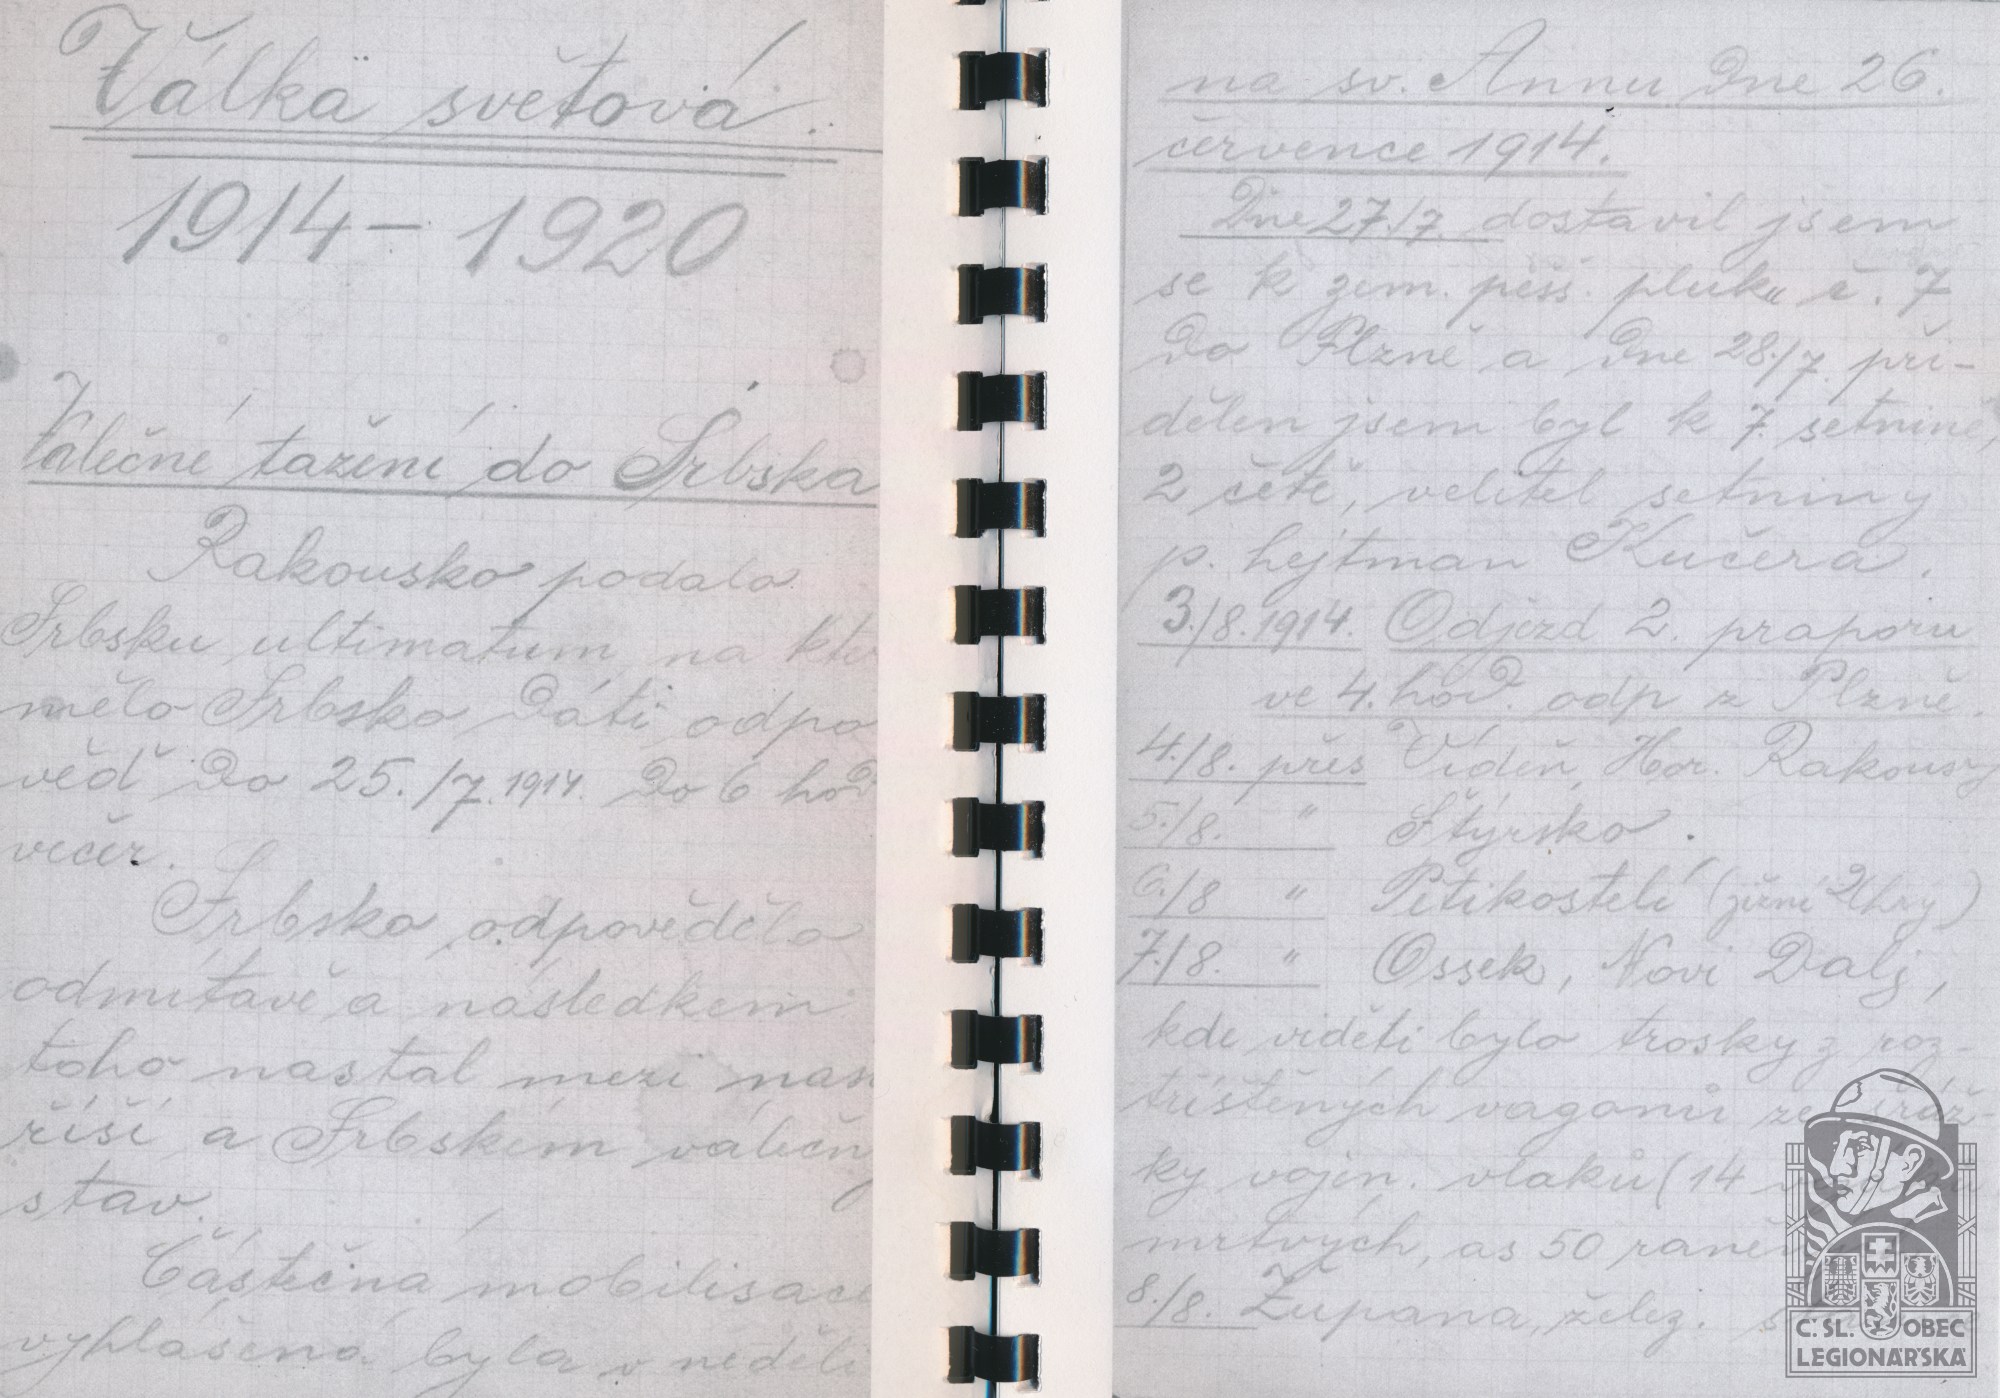 Válka světová.
1914 – 1920
Válečné tažení do Srbska
Rakousko podalo
Srbsku ultimatum, na kte
mělo Srbsko dáti odpo
věď do 25./7. 1914. do 6 hod
večer.
Srbsko odpovědělo
odmítavě a následkem
toho nastal mezi naš
říší a Srbskem válečný
stav.
Částečná mobilisace
vyhlášena byla v neděli
na sv. Annu dne 26.
července 1914.
Dne 27./7. dostavil jsem
se k zem. pěš. pluku č. 7
do Plzně a dne 28./7. při-
dělen jsem byl k 7. setnině,
2 četě, velitel setniny
p. hejtman Kučera.
3./8. 1914. Odjezd 2. praporu
ve 4. hod. odp. z Plzně.
4./8. přes Vídeň, Hor. Rakousy
5./8. " Štýrsko.
6./8 " Pětikostelí (jižní Uhry)
7./8. " Ossek, Novi Dalj,
kde viděti bylo trosky z roz-
tříštěných vagonů ze sráž-
ky vojen. vlaků (14
mrtvých, as 50 raněn
8./8. Župana, želez.
Č. SL. OBEC
LEGIONÁŘSKÁ